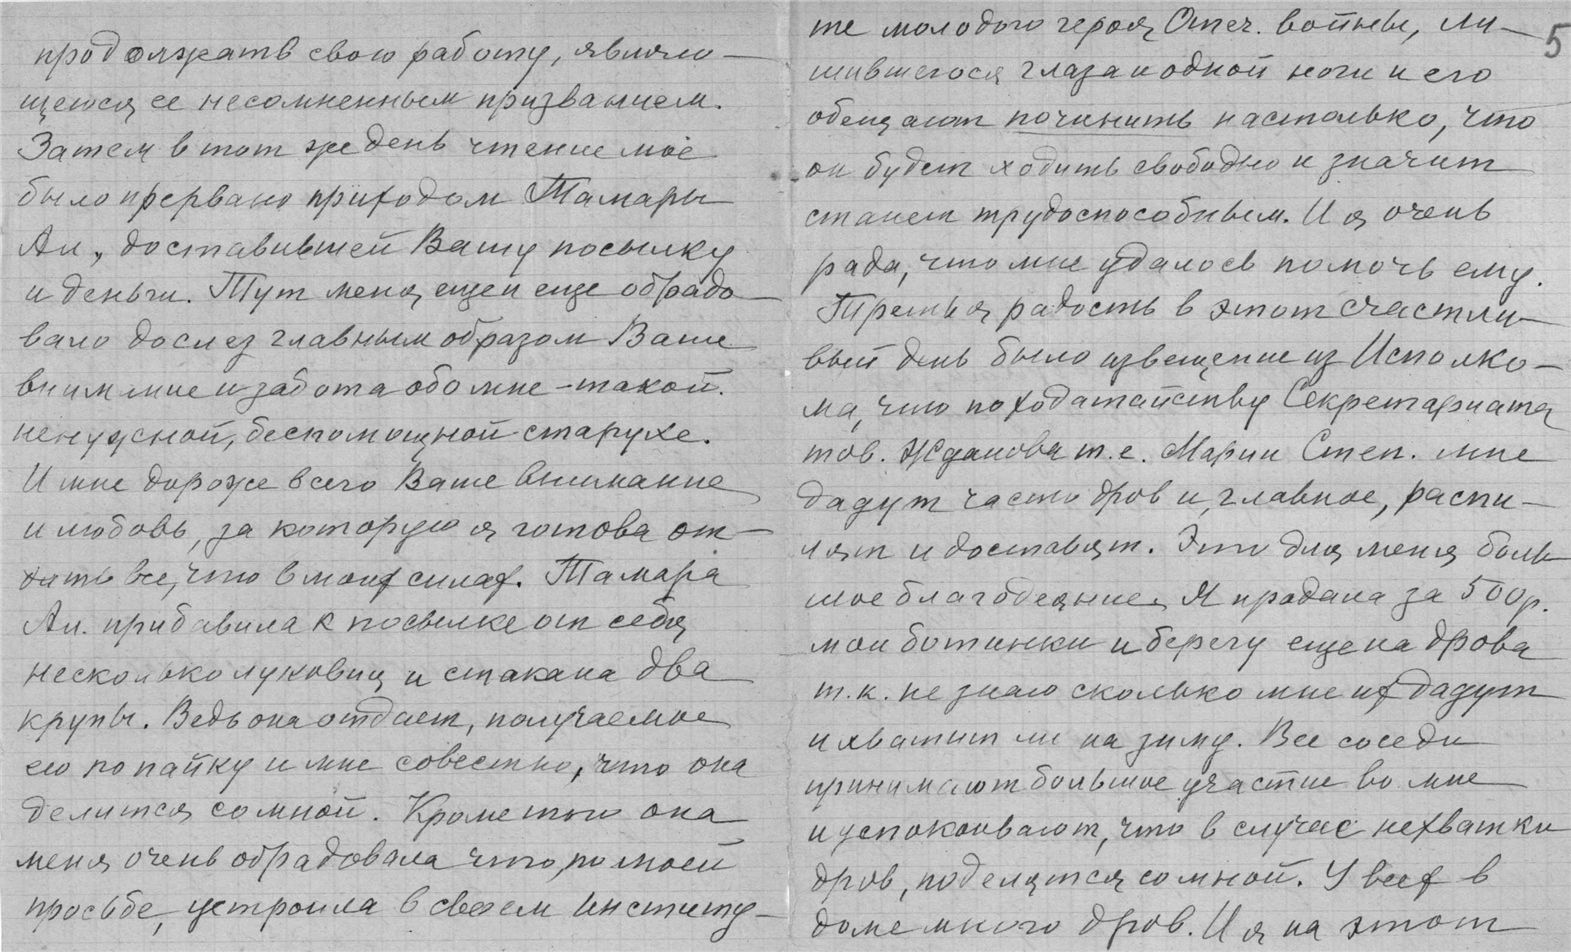 продолжать свою работу, являю-
щеюся ее несомненным призванием.
Затем в тот же день чтение мое
было прервано приходом Тамары
Ал., доставившей Вашу посылку
и деньги. Тут меня еще и еще обрадо-
вало до слез главным образом Ваше
внимание и забота обо мне - такой
ненужной, беспомощной старухе.
И мне дороже всего Ваше внимание
и любовь, за которую я готова от-
дать все, что в моих силах. Тамара
Ал. прибавила к посылке от себя
несколько луковиц и стакана два
крупы. Ведь она отдает, получаемое
ею по пайку и мне совестно, что она
делится со мной. Кроме того она
меня очень обрадовала что, по моей
просьбе, устроила в своем Институ-
5
те молодого героя Отеч. войны, ли-
шившегося глаза и одной ноги и его
обещают починить настолько, что
он будет ходить свободно и значит
станет трудоспособным. И я очень
рада, что мне удалось помочь ему.
Третья радость в этот счастли-
вый день было извещение из Исполко-
ма, что по ходатайству Секретариата
тов. Жданова т.е. Марии Степ. мне
дадут часть дров и, главное, распи-
лят и доставят. Это для меня боль
шое благодеяние. Я продала за 500р.
мои ботинки и берегу еще на дрова
т.к. не знаю сколько мне их дадут
и хватит ли на зиму. Все соседи
принимают большое участие во мне
и успокаивают, что в случае нехватки
дров, поделятся со мной. У всех в
доме много дров. И я на этот